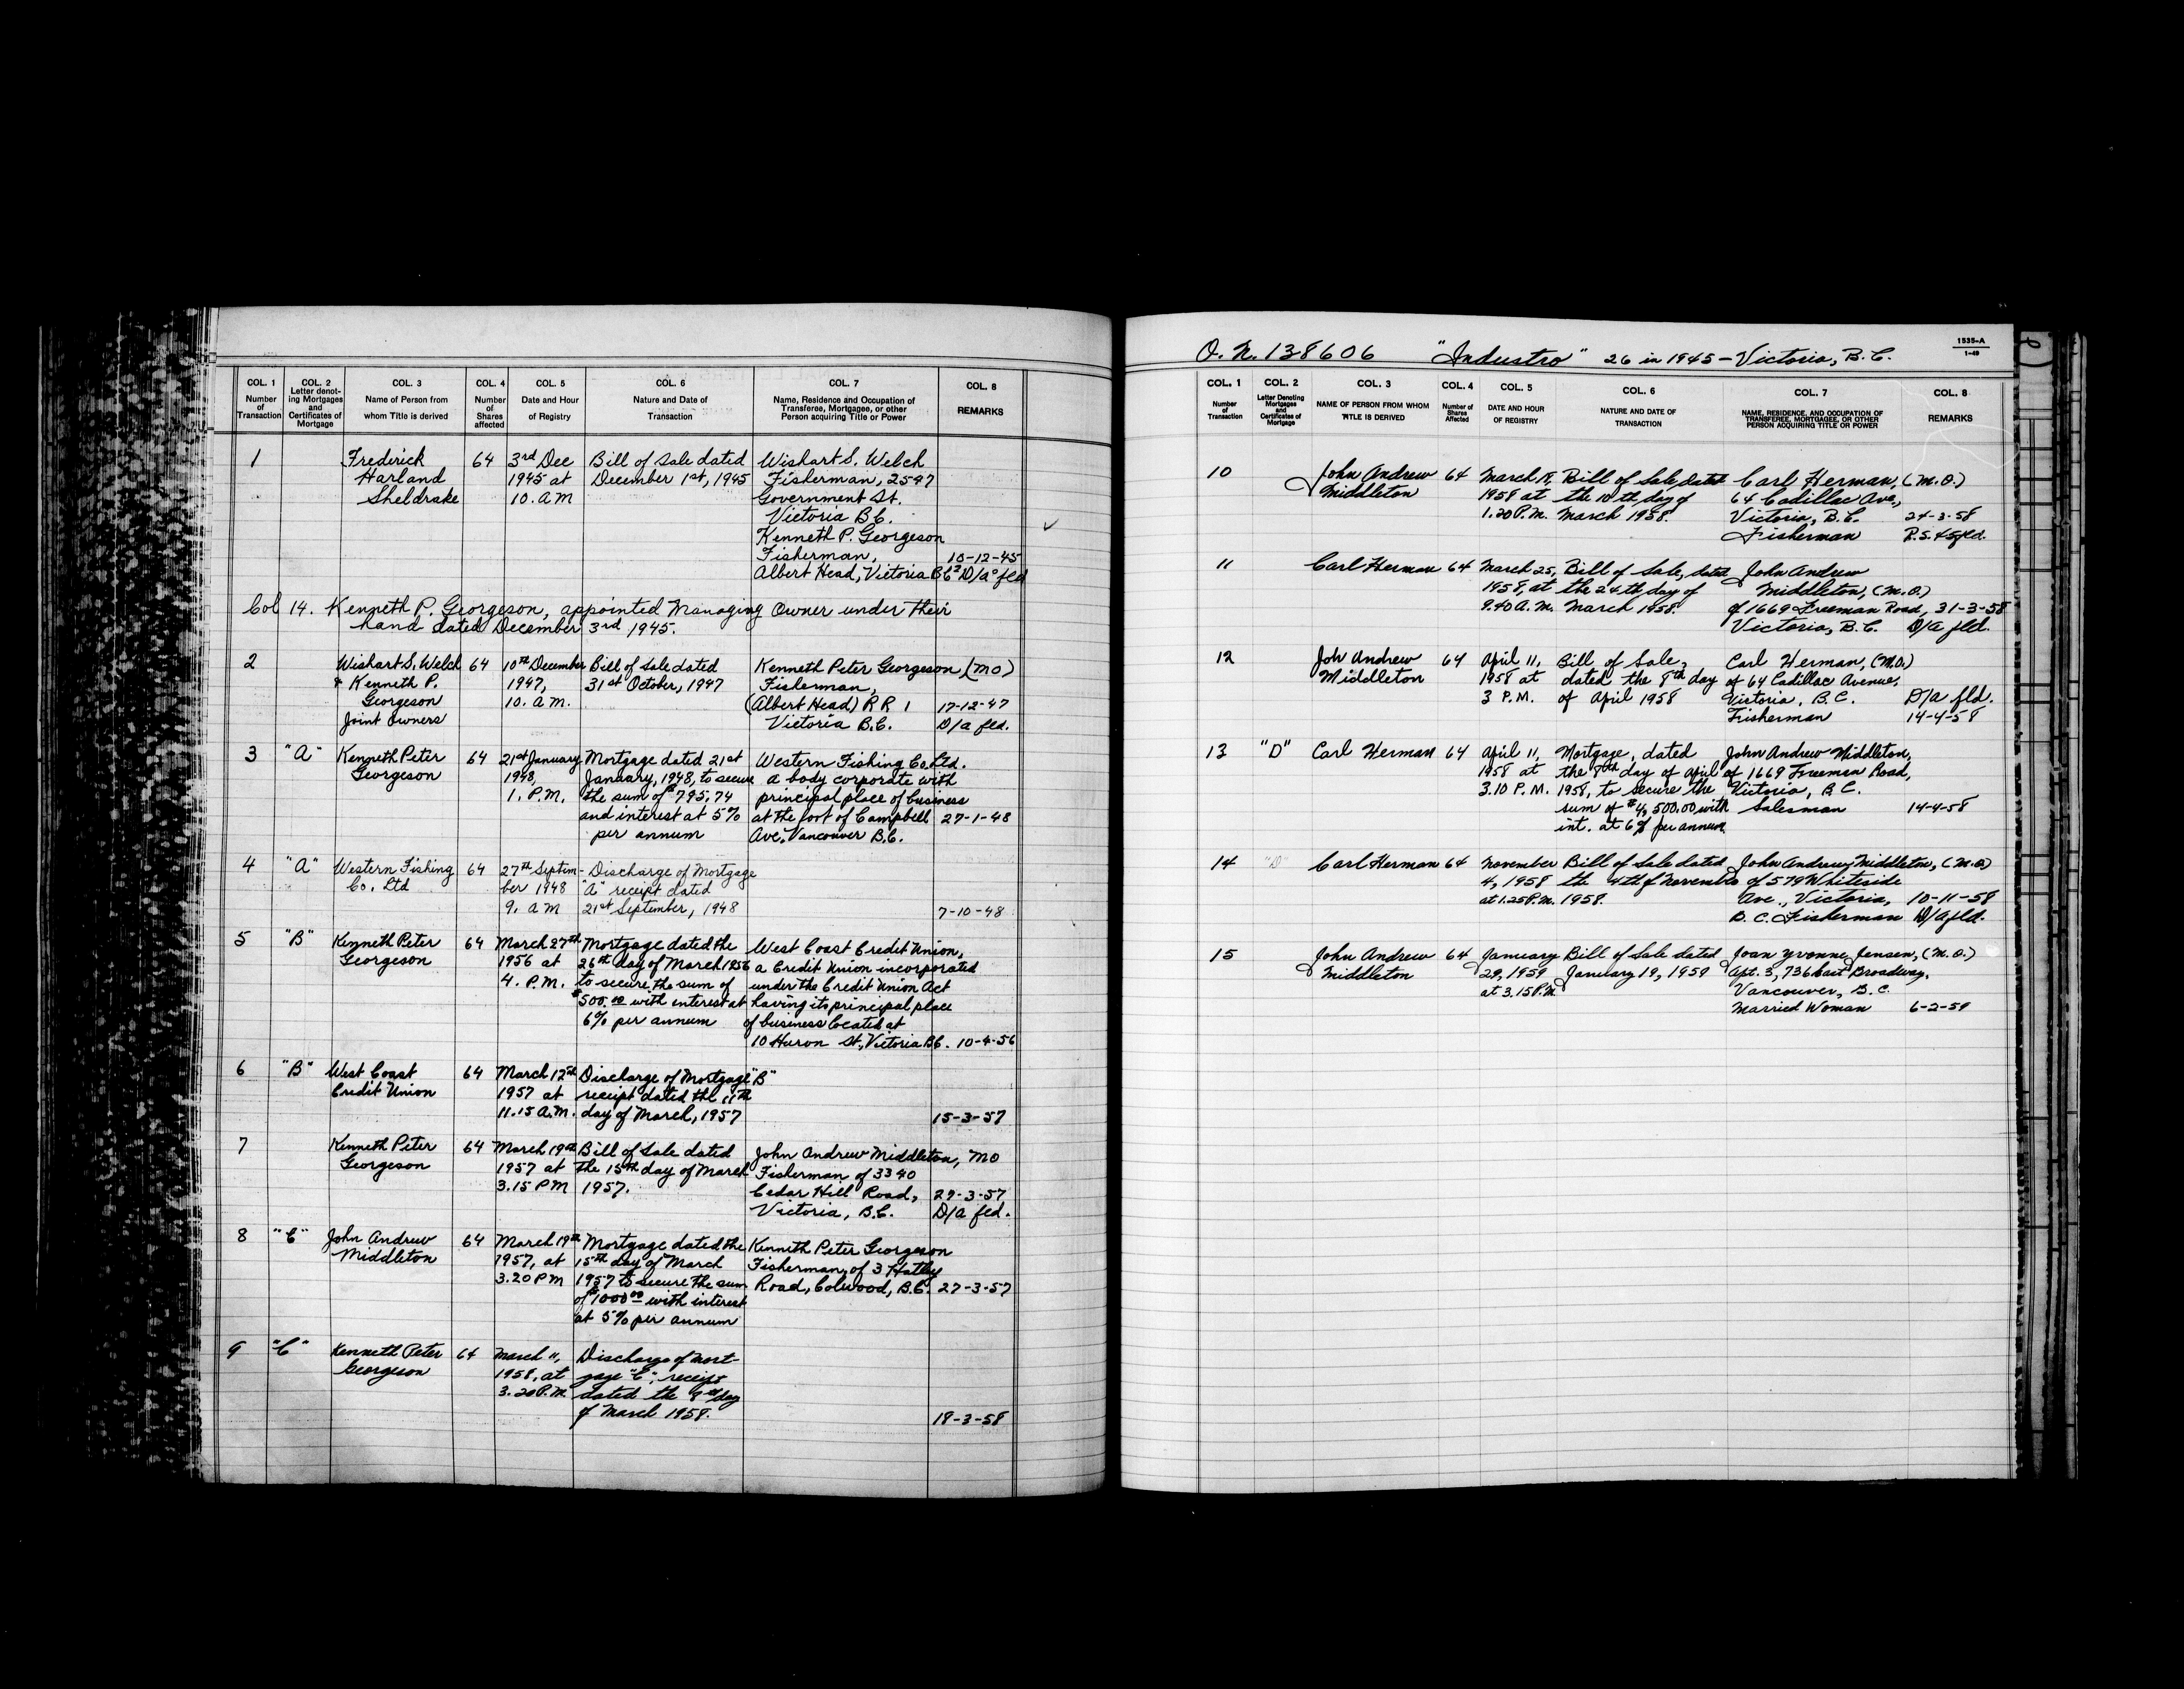 COL. 1 Number of Transaction
COL. 2 Letter denoting Mortgages and Certificates of Mortgage
COL. 3 Name of Person from whom Title is derived
COL. 4 Number of Shares affected
COL. 5 Date and Hour of Registry
COL. 6 Nature and Date of Transaction
COL. 7 Name, Residence and Occupation of Transferee, Mortgagee, or other Person acquiring Title or Power
COL. 8 REMARKS
1 Frederick 64 3rd Dec Bill of Sale dated Wishart S. Welch
Harland 1945 at December 1st, 1945 Fisherman, 2597
Sheldrake 10. A M Government St.
Victoria B.C.
Kenneth P. Georgeson
Fisherman, 10-12-45
Albert Head, Victoria B.C. 2 D/as fld
Col 14. Kenneth P. Georgeson, appointed Managing Owner under their
hand dated December 3rd 1945.
2 Wishart S. Welch 64 10th December Bill of Sale dated Kenneth Peter Georgeson (MO)
& Kenneth P. 1947, 31st October, 1947 Fisherman,
Georgeson 10. a.m. (Albert Head) R R 1 17-12-47
Joint Owners Victoria B.C. D/a fld.
3 "A" Kenneth Peter 64 21st January Mortgage dated 21st Western Fishing Co. Ltd.
Georgeson 1948, January, 1948, to secure a body corporate with
1. P.M. the sum of $795.74 principal place of business
and interest at 5% at the foot of Campbell 27-1-48
per annum Ave, Vancouver B.C.
4 "A" Western Fishing 64 27th Septem- Discharge of Mortgage
Co. Ltd ber 1948 "A" receipt dated
9. a M 21st September, 1948 7-10-48
5 "B" Kenneth Peter 64 March 27th Mortgage dated the West Coast Credit Union,
Georgeson 1956 at 26th day of March 1956 a Credit Union incorporated
4. P.M. to secure the sum of under the Credit Union Act
$500.00 with interest at having its principal place
6% per annum of business located at
10 Huron St, Victoria B.C. 10-4-56
6 "B" West Coast 64 March 12th Discharge of Mortgage "B"
Credit Union 1957 at receipt dated the 11th
11.15 A.M. day of March, 1957 15-3-57
7 Kenneth Peter 64 March 19th Bill of Sale dated John Andrew Middleton, MO
Georgeson 1957 at the 15th day of March Fisherman of 3340
3.15 PM 1957. Cedar Hill Road, 27-3-57
Victoria, B.C. D/a fld.
8 "C" John Andrew 64 March 19th Mortgage dated the Kenneth Peter Georgeson
Middleton 1957, at 15th day of March Fisherman, of 3 Hatley
3.20 PM 1957 to secure the sum Road, Colwood, B.C. 27-3-57
of $1000.00 with interest
at 5% per annum
9 "C" Kenneth Peter 64 March 11, Discharge of Mort-
Georgeson 1958, at gage "C", receipt
3.20 P.M. dated the day
of March 1958. 18-3-58
O. N. 138606 "Industro" 26 in 1945 – Victoria, B.C. 1535-A
1-49
COL. 1 Number of Transaction
COL. 2 Letter Denoting Mortgages and Certificates of Mortgage
COL. 3 NAME OF PERSON FROM WHOM TITLE IS DERIVED
COL. 4 Number of Shares Affected
COL. 5 DATE AND HOUR OF REGISTRY
COL. 6 NATURE AND DATE OF TRANSACTION
COL. 7 NAME, RESIDENCE, AND OCCUPATION OF TRANSFEREE, MORTGAGEE, OR OTHER PERSON ACQUIRING TITLE OR POWER
COL. 8 REMARKS
10 John Andrew 64 March 18, Bill of Sale, dated Carl Herman, (M.O.)
Middleton 1958 at the 10th, day of 64 Cadillac Ave,
1.20 P.M. March 1958. Victoria, B.C. 24-3-58
Fisherman
11 Carl Herman 64 March 25, Bill of Sale, dated John Andrew
1958, at the 24th day of Middleton, (M.O.)
9.40 A.M. March 1958. of 1669 Freeman Road, 31-3-58
Victoria, B.C. D/a fld.
12 Joh Andrew 64 April 11, Bill of Sale, Carl Herman, (M.O.)
Middleton 1958 at dated the 8th day of 64 Cadillac Avenue,
3 P.M. of April 1958 Victoria, B.C. D/a fld.
Fisherman 14-4-58
13 "D" Carl Herman 64 April 11, Mortgage, dated John Andrew Middleton,
1958 at the 8th day of April of 1669 Freeman Road,
3.10 P.M. 1958, to secure the Victoria, B.C.
sum of $4,500.00 with Salesman 14-4-58
int. at 6% per annum
14 "D" Carl Herman 64 November Bill of Sale dated John Andrew Middleton, (M.O)
4, 1958 the 4th of November of 579 Whiteside
at 1.25 P.M. 1958. Ave., Victoria, 10-11-58
B.C. Fisherman D/A fld.
15 John Andrew 64 January Bill of Sale dated Joan Yvonne Jensen, (M.O.)
Middleton 29, 1959 January 19, 1959 Apt. 3, 736 East Broadway,
at 3.15 P.M. Vancouver, B.C.
Married Woman 6-2-59